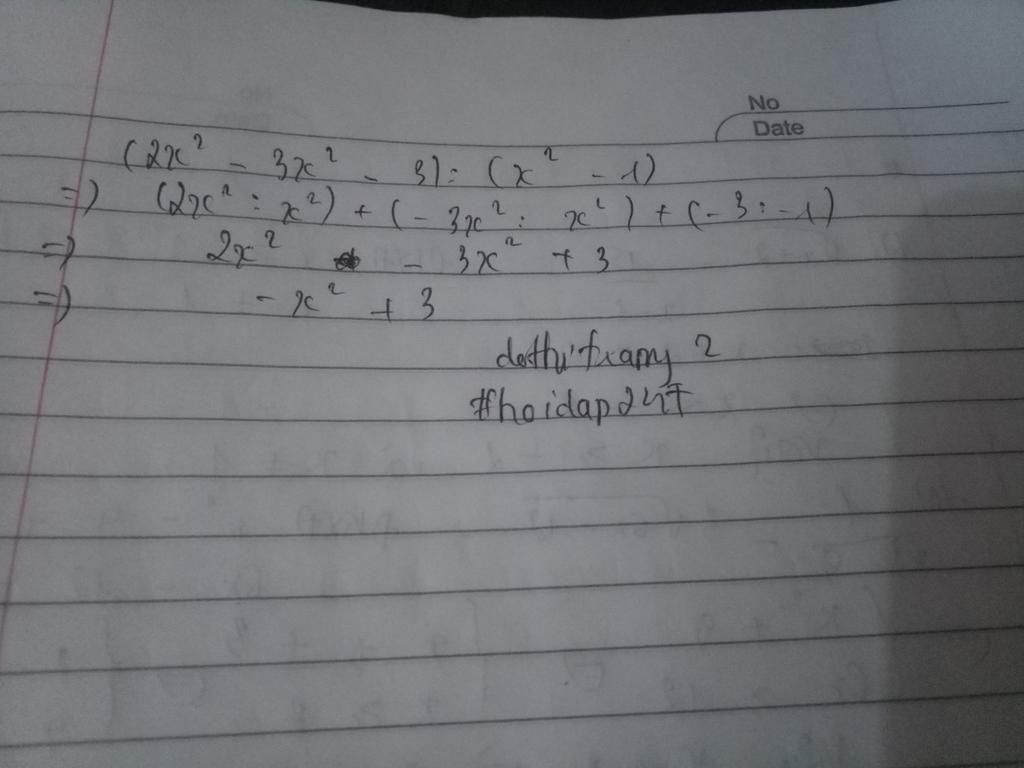 No
Date
(2x² - 3x² - 3) : (x² - 1)
=) (2x² : x²) + (-3x² : x²) + (-3 : -1)
=) 2x² - 3x² + 3
=) - x² + 3
#hoidap247